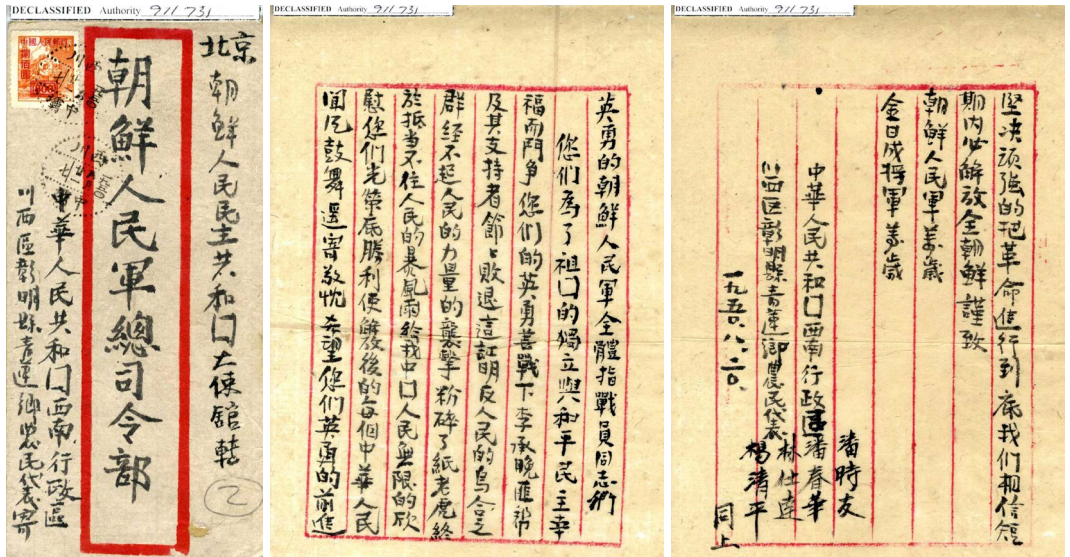 DECLASSIFIED Authority 911 731
北京
朝鮮人民民主共和囗大使舘轉
朝鮮人民軍總司令部
中華人民共和囗西南行政區
川西區彰明縣青蓮鄉農民代表寄
2
DECLASSIFIED Authority 911 731
英勇的朝鮮人民軍全體指戰員同志們
您们為了祖囗的獨立與和平民主幸
福而鬥争您们的英勇善戰下李承晚匪帮
及其支持者節々敗退這証明反人民的烏合之
群经不起人民的力量的襲擊粉碎了紙老虎终
於抵当不住人民的暴風雨给我中囗人民無限的欣
慰您们光荣底勝利使解放後的每個中華人民
闻风鼓舞遥寄敬忱希望您们英勇的前進
DECLASSIFIED Authority 911 731
坚决顽强的把革命進行到底我们相信短
期内必解放全朝鮮謹致
朝鮮人民軍萬歲
金日成将軍萬歲
中華人民共和囗西南行政區
川西区彰明縣青蓮鄉農民代表
潘時友
潘春華
林仕連
楊清平
同上
一九五〇.八.二〇.